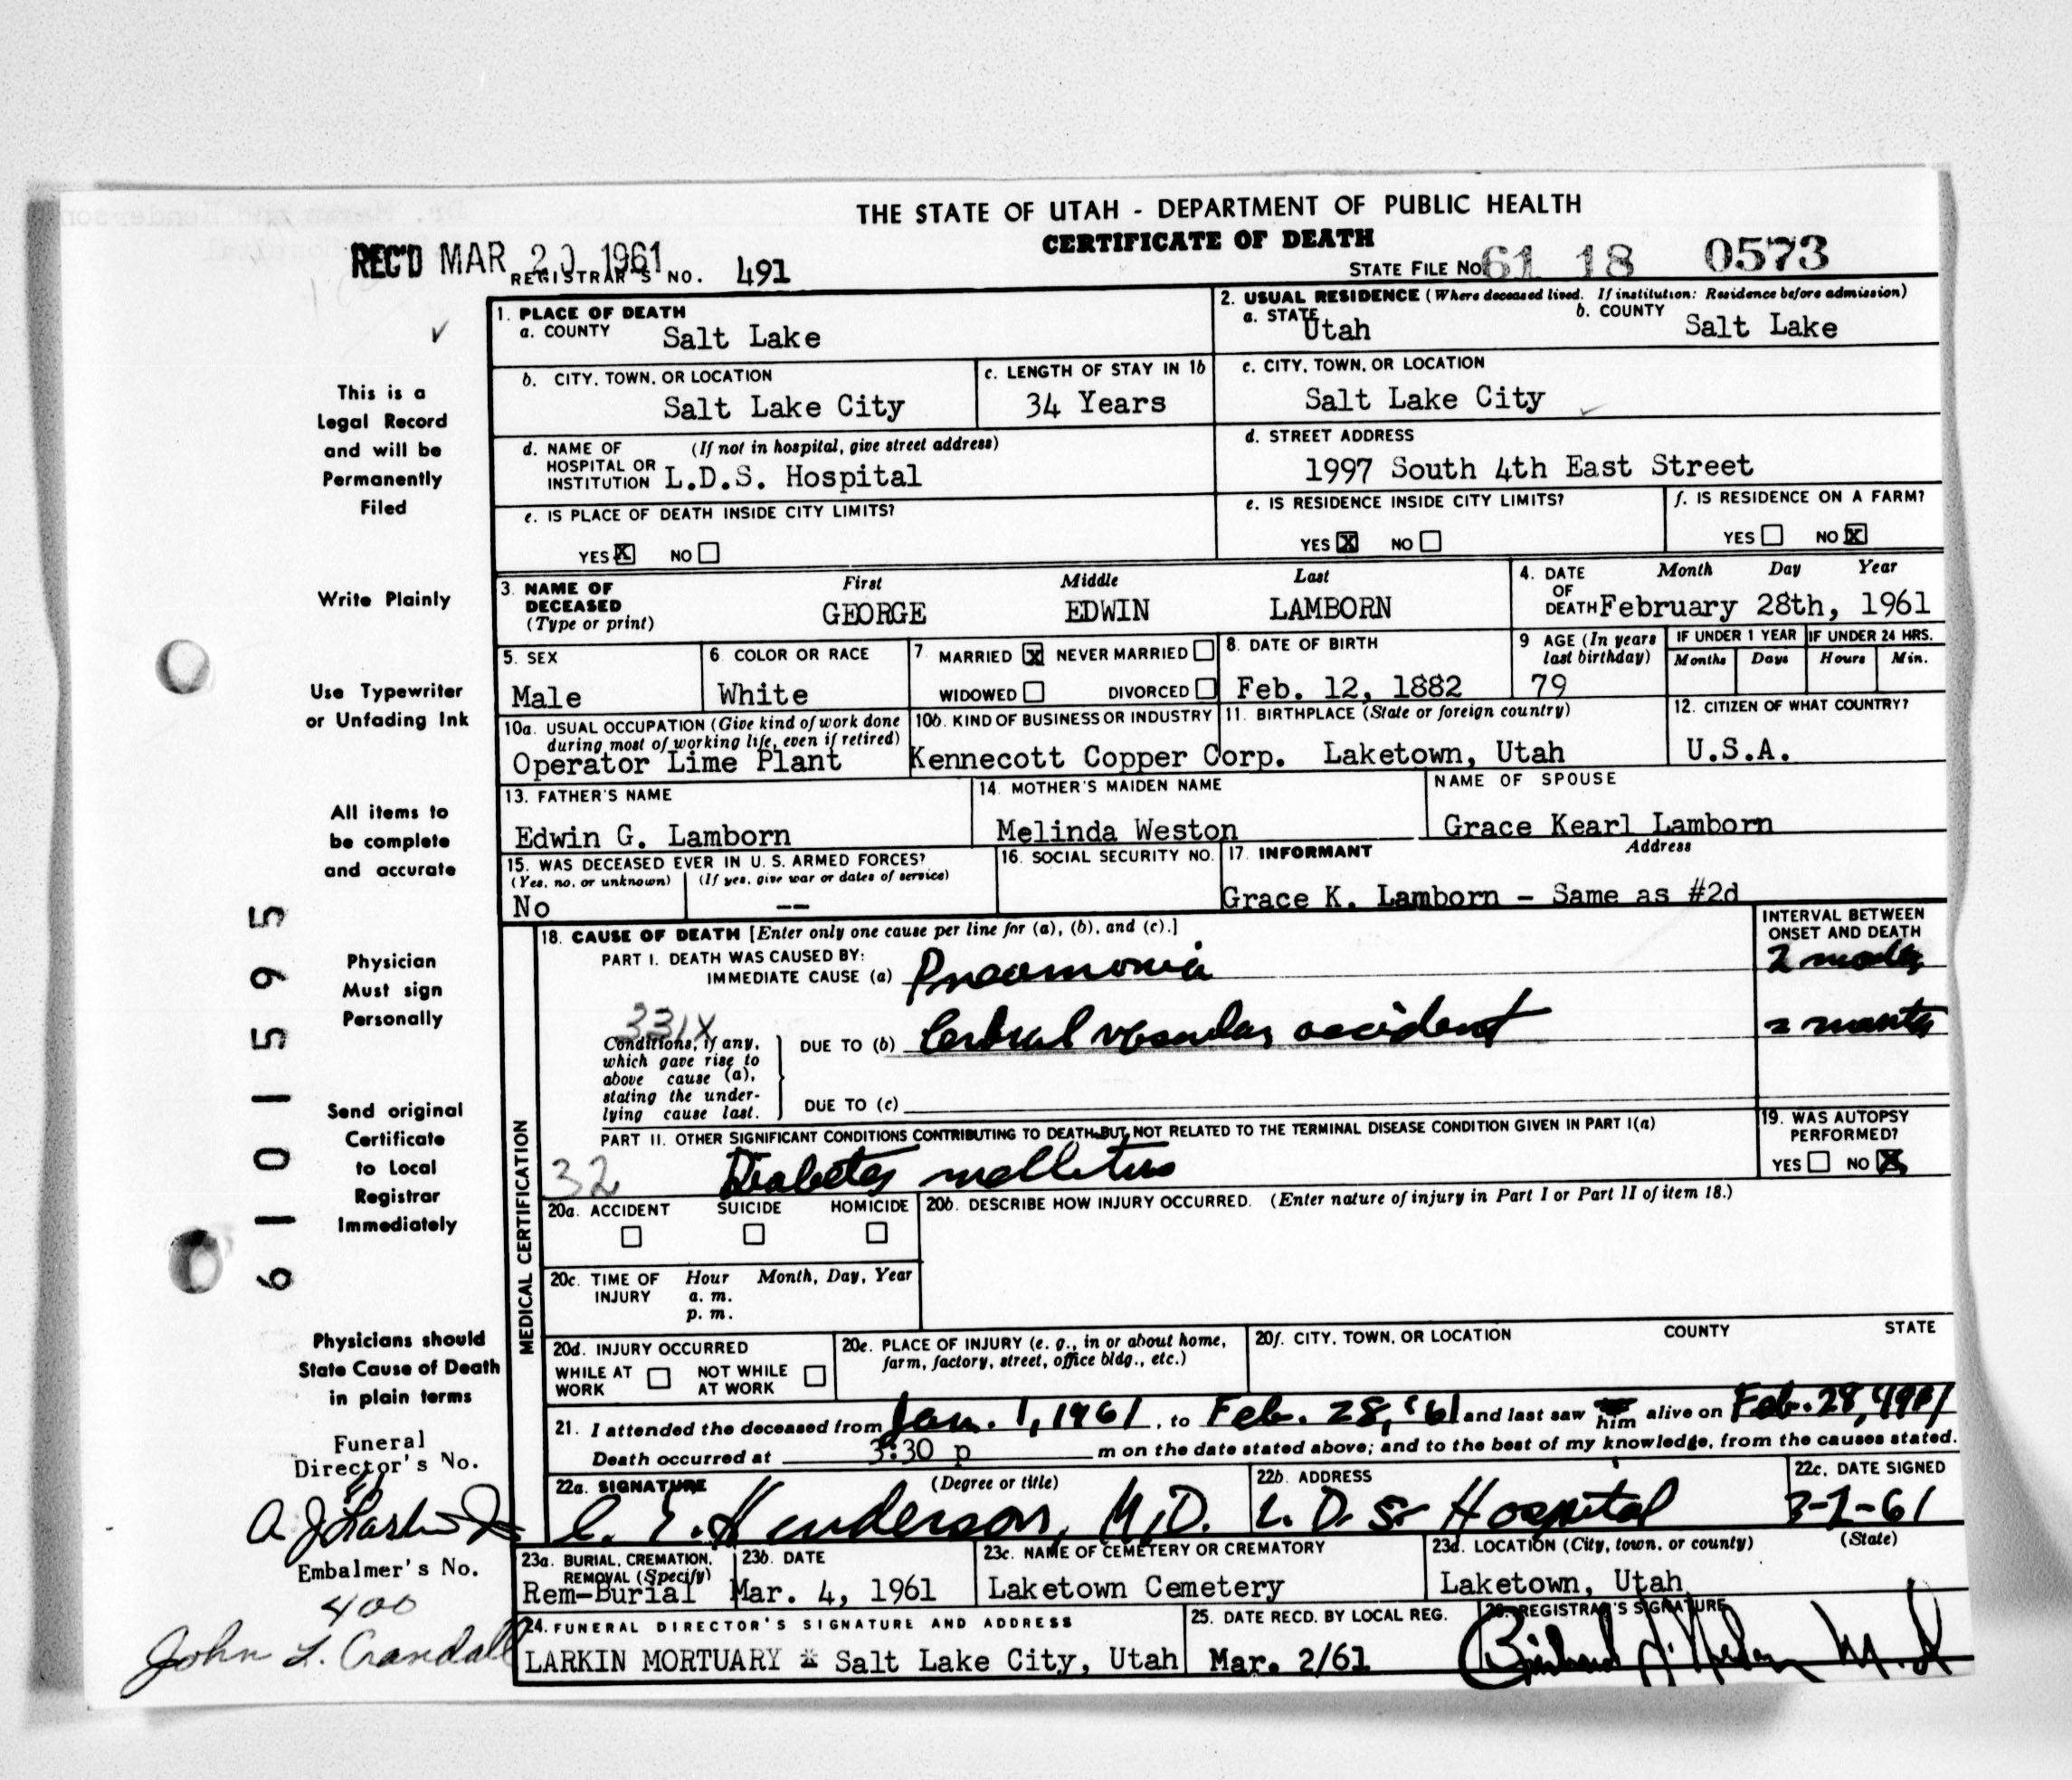 THE STATE OF UTAH - DEPARTMENT OF PUBLIC HEALTH
CERTIFICATE OF DEATH
REC'D MAR 20 1961
REGISTRAR'S NO. 491
STATE FILE NO. 61 18 0573
1. PLACE OF DEATH
a. COUNTY Salt Lake
2. USUAL RESIDENCE (Where deceased lived. If institution: Residence before admission)
a. STATE Utah b. COUNTY Salt Lake
b. CITY, TOWN, OR LOCATION Salt Lake City
c. LENGTH OF STAY IN 1b 34 Years
c. CITY, TOWN, OR LOCATION
Salt Lake City
d. NAME OF HOSPITAL OR INSTITUTION (If not in hospital, give street address)
L.D.S. Hospital
d. STREET ADDRESS
1997 South 4th East Street
e. IS PLACE OF DEATH INSIDE CITY LIMITS?
YES X NO
e. IS RESIDENCE INSIDE CITY LIMITS?
YES X NO
f. IS RESIDENCE ON A FARM?
YES NO X
3. NAME OF DECEASED (Type or print)
First Middle Last
GEORGE EDWIN LAMBORN
4. DATE OF DEATH Month Day Year
February 28th, 1961
5. SEX
Male
6. COLOR OR RACE
White
7. MARRIED X NEVER MARRIED
WIDOWED DIVORCED
8. DATE OF BIRTH
Feb. 12, 1882
9 AGE (In years last birthday)
79
IF UNDER 1 YEAR IF UNDER 24 HRS.
Months Days Hours Min.
10a. USUAL OCCUPATION (Give kind of work done during most of working life, even if retired)
Operator Lime Plant
10b. KIND OF BUSINESS OR INDUSTRY
Kennecott Copper Corp.
11. BIRTHPLACE (State or foreign country)
Laketown, Utah
12. CITIZEN OF WHAT COUNTRY?
U.S.A.
13. FATHER'S NAME
Edwin G. Lamborn
14. MOTHER'S MAIDEN NAME
Melinda Weston
NAME OF SPOUSE
Grace Kearl Lamborn
15. WAS DECEASED EVER IN U. S. ARMED FORCES?
(Yes, no, or unknown) (If yes, give war or dates of service)
No --
16. SOCIAL SECURITY NO.
17. INFORMANT Address
Grace K. Lamborn - Same as #2d
MEDICAL CERTIFICATION
18. CAUSE OF DEATH [Enter only one cause per line for (a), (b), and (c).]
INTERVAL BETWEEN ONSET AND DEATH
PART I. DEATH WAS CAUSED BY:
IMMEDIATE CAUSE (a) Pneumonia
331X
Conditions, if any, which gave rise to above cause (a), stating the underlying cause last.
DUE TO (b) Cerebral vascular accident 2 months
DUE TO (c)
PART II. OTHER SIGNIFICANT CONDITIONS CONTRIBUTING TO DEATH BUT NOT RELATED TO THE TERMINAL DISEASE CONDITION GIVEN IN PART I(a)
32 Diabetes mellitus
19. WAS AUTOPSY PERFORMED?
YES NO X
20a. ACCIDENT SUICIDE HOMICIDE
20b. DESCRIBE HOW INJURY OCCURRED. (Enter nature of injury in Part I or Part II of item 18.)
20c. TIME OF INJURY Hour Month, Day, Year
a. m.
p. m.
20d. INJURY OCCURRED
WHILE AT WORK NOT WHILE AT WORK
20e. PLACE OF INJURY (e. g., in or about home, farm, factory, street, office bldg., etc.)
20f. CITY, TOWN, OR LOCATION COUNTY STATE
21. I attended the deceased from Jan. 1, 1961, to Feb. 28, '61 and last saw him alive on Feb. 28, 1961
Death occurred at 3:30 p m on the date stated above; and to the best of my knowledge, from the causes stated.
22a. SIGNATURE (Degree or title)
C. E. Henderson, M.D.
22b. ADDRESS
L. D. S. Hospital
22c. DATE SIGNED
3-2-61
23a. BURIAL, CREMATION, REMOVAL (Specify)
Rem-Burial
23b. DATE
Mar. 4, 1961
23c. NAME OF CEMETERY OR CREMATORY
Laketown Cemetery
23d. LOCATION (City, town, or county) (State)
Laketown, Utah
24. FUNERAL DIRECTOR'S SIGNATURE AND ADDRESS
LARKIN MORTUARY * Salt Lake City, Utah
25. DATE RECD. BY LOCAL REG.
Mar. 2/61
26. REGISTRAR'S SIGNATURE
This is a
Legal Record
and will be
Permanently
Filed
Write Plainly
Use Typewriter
or Unfading Ink
All items to
be complete
and accurate
Physician
Must sign
Personally
Send original
Certificate
to Local
Registrar
Immediately
Physicians should
State Cause of Death
in plain terms
Funeral
Director's No.
Embalmer's No.
400
John L. Crandall
61015595